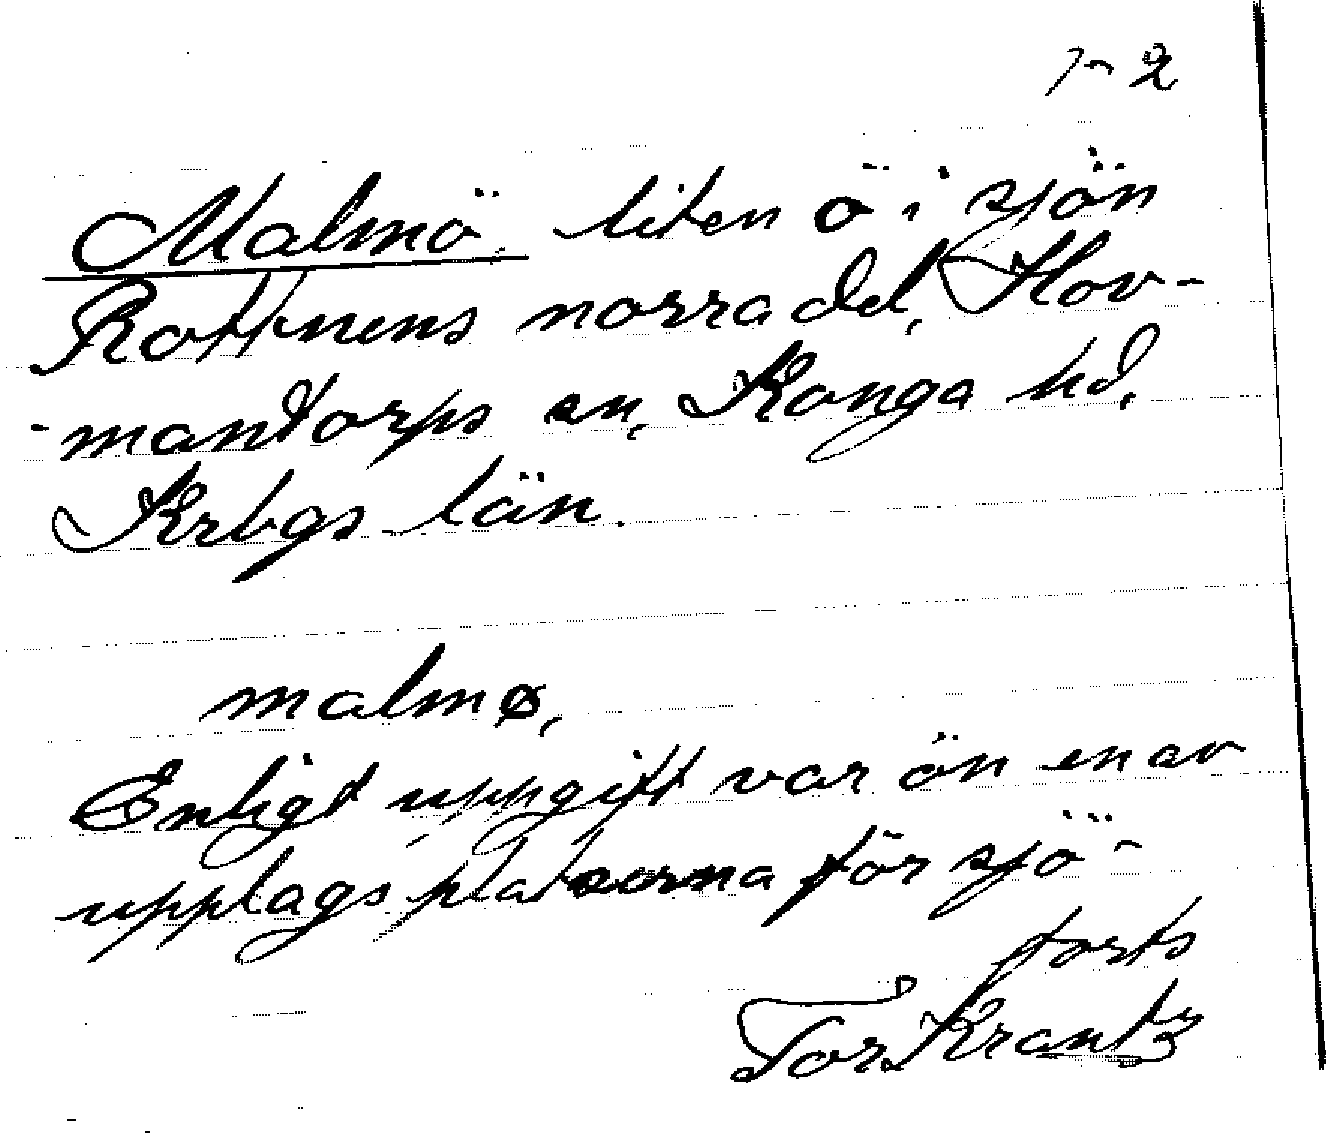 1-2
Malmö, liten ö i sjön
Rottnens norra del, Hov-
-mantorps sn, Konga hd,
Krbgs län.
malmø,
Enligt uppgift var ön en av
upplagsplatserna för sjö-
forts
Tor Krantz